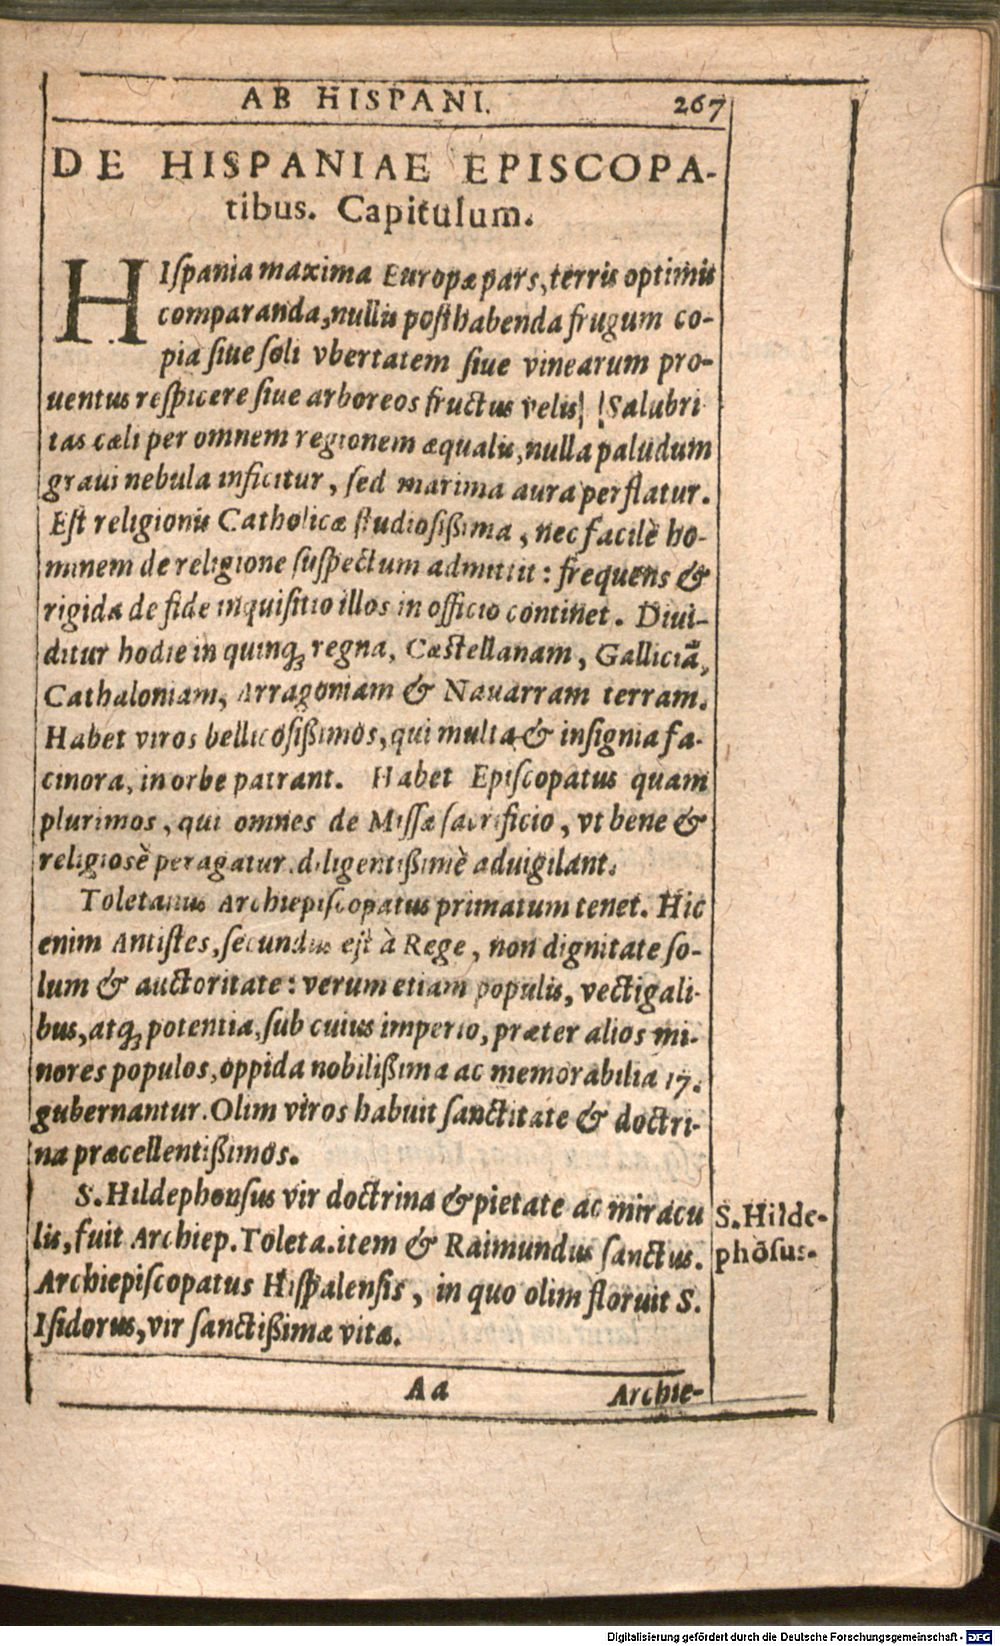 AB HISPANI. 267
DE HISPANIAE EPISCOPA-
tibus. Capitulum.
HIſpania maxima Europæ pars, terris optimis
comparanda, nullis poſthabenda frugum co-
pia ſiue ſoli vbertatem ſiue vinearum pro-
uentus reſpicere ſiue arboreos fructus velis! !Salubri
tas cæli per omnem regionem æqualis, nulla paludum
graui nebula inficitur, ſed marima aura perflatur.
Eſt religionis Catholicæ ſtudioſißima, nec facilè ho-
minem de religione ſuſpectum admittit: frequens &
rigida de fide inquiſitio illos in officio continet. Diui-
ditur hodie in quinq; regna, Caſtellanam, Galliciã,
Cathaloniam, Arragoniam & Nauarram terram.
Habet viros bellicoſißimos, qui multa & inſignia fa-
cinora, in orbe patrant. Habet Epiſcopatus quam
plurimos, qui omnes de Miſſæ ſacrificio, vt bene &
religiosè peragatur diligentißimè aduigilant.
Toletanus Archiepiſcopatus primatum tenet. Hic
enim Antiſtes, ſecundus eſt à Rege, non dignitate ſo-
lum & auctoritate: verum etiam populis, vectigali-
bus, atq; potentia, ſub cuius imperio, præter alios mi-
nores populos, oppida nobilißima ac memorabilia 17.
gubernantur. Olim viros habuit ſanctitate & doctri-
na præcellentißimos.
S. Hildephonſus vir doctrina & pietate ac miracu
lis, fuit Archiep. Toleta. item & Raimundus ſanctus.
Archiepiſcopatus Hiſpalenſis, in quo olim floruit S.
Iſidorus, vir ſanctißimæ vitæ.
S. Hilde-
phõſus.
Aa Archie-
Digitalisierung gefördert durch die Deutsche Forschungsgemeinschaft - DFG